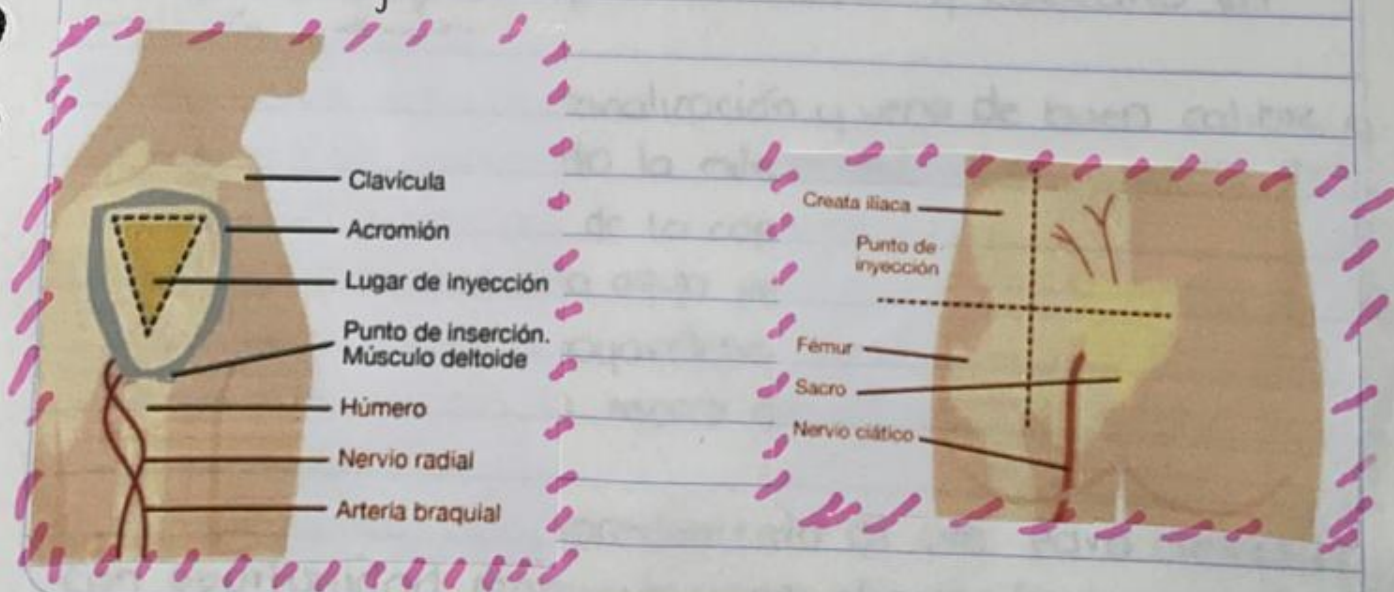 Clavícula
Acromión
Lugar de inyección
Punto de inserción.
Músculo deltoide
Húmero
Nervio radial
Arteria braquial
Creata iliaca
Punto de
inyección
Fémur
Sacro
Nervio ciático